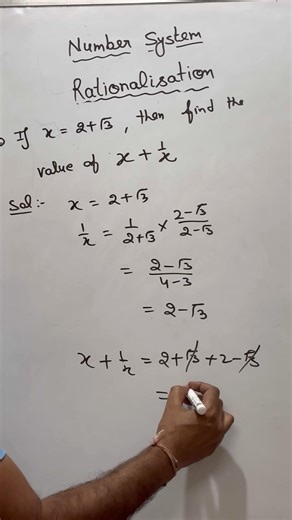 Number System
Rationalisation
If x = 2+√3, then find the
value of x + 1/x
Sol:- x = 2+√3
1/x = 1/(2+√3) × (2-√3)/(2-√3)
= (2-√3)/(4-3)
= 2-√3
x + 1/x = 2+√3 + 2-√3
=